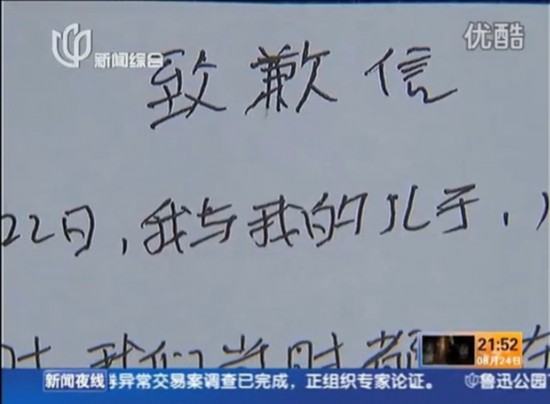 新闻综合
优酷
致歉信
22日,我与我的儿子,
时 我们当时都
21:52
08月24日
新闻夜线 券异常交易案调查已完成，正组织专家论证。 鲁迅公园